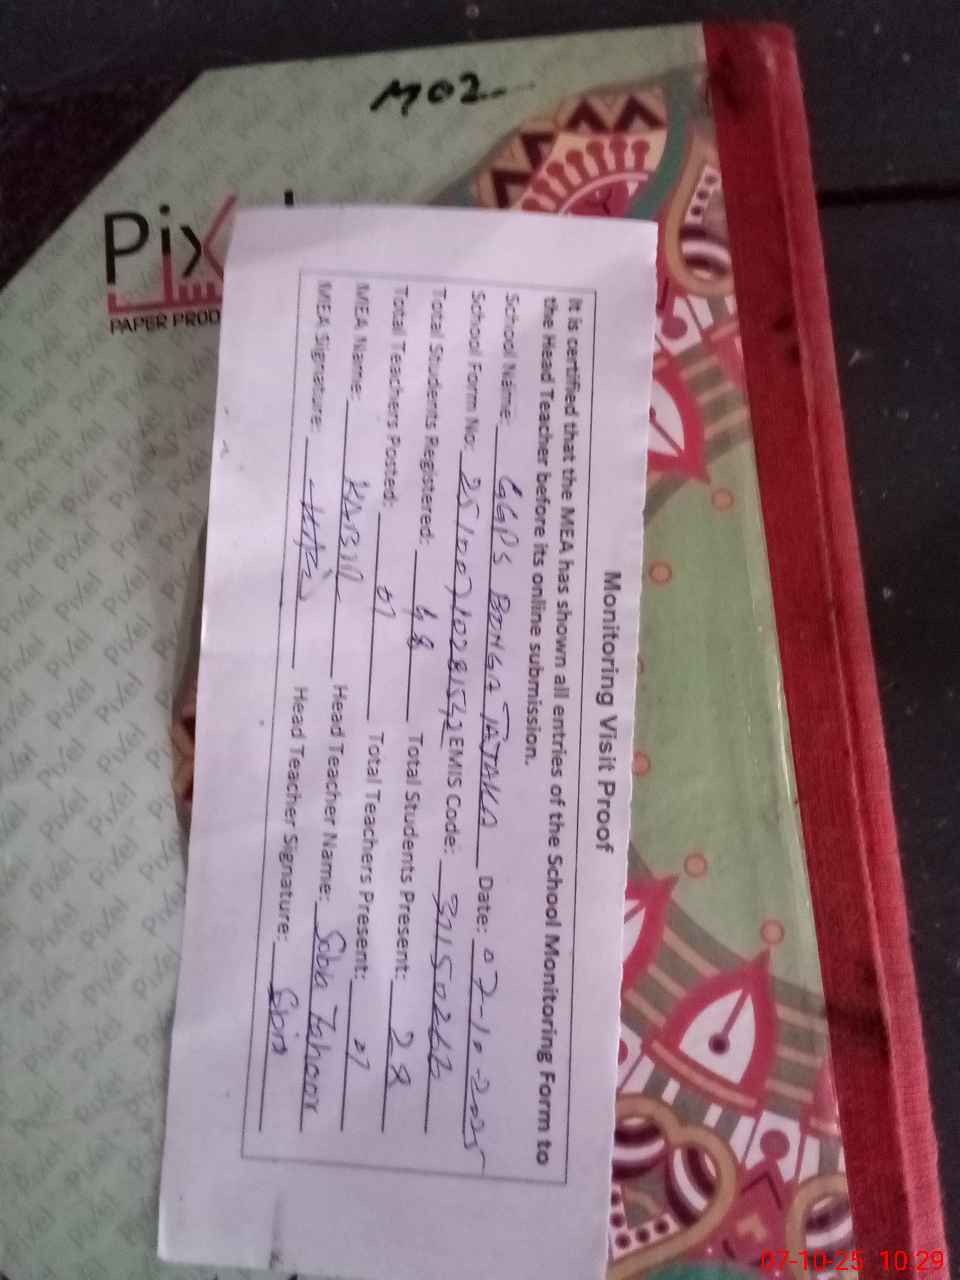 M02
Pixel
PAPER PROD
Monitoring Visit Proof
It is certified that the MEA has shown all entries of the School Monitoring Form to
the Head Teacher before its online submission.
School Name: GGPS BONGA Date: 07-10-2025
School Form No: EMIS Code:
Total Students Registered: 48 Total Students Present: 28
Total Teachers Posted: 01 Total Teachers Present: 01
MEA Name: KABIR Head Teacher Name: Saba
MEA Signature: Head Teacher Signature:
07-10-25 10:29